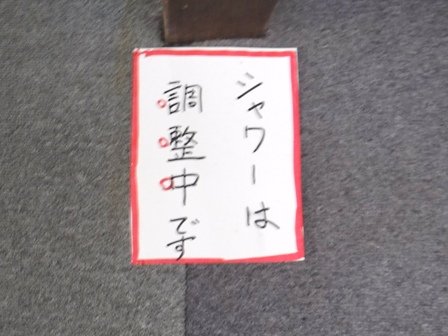 シャワーは
調整中です